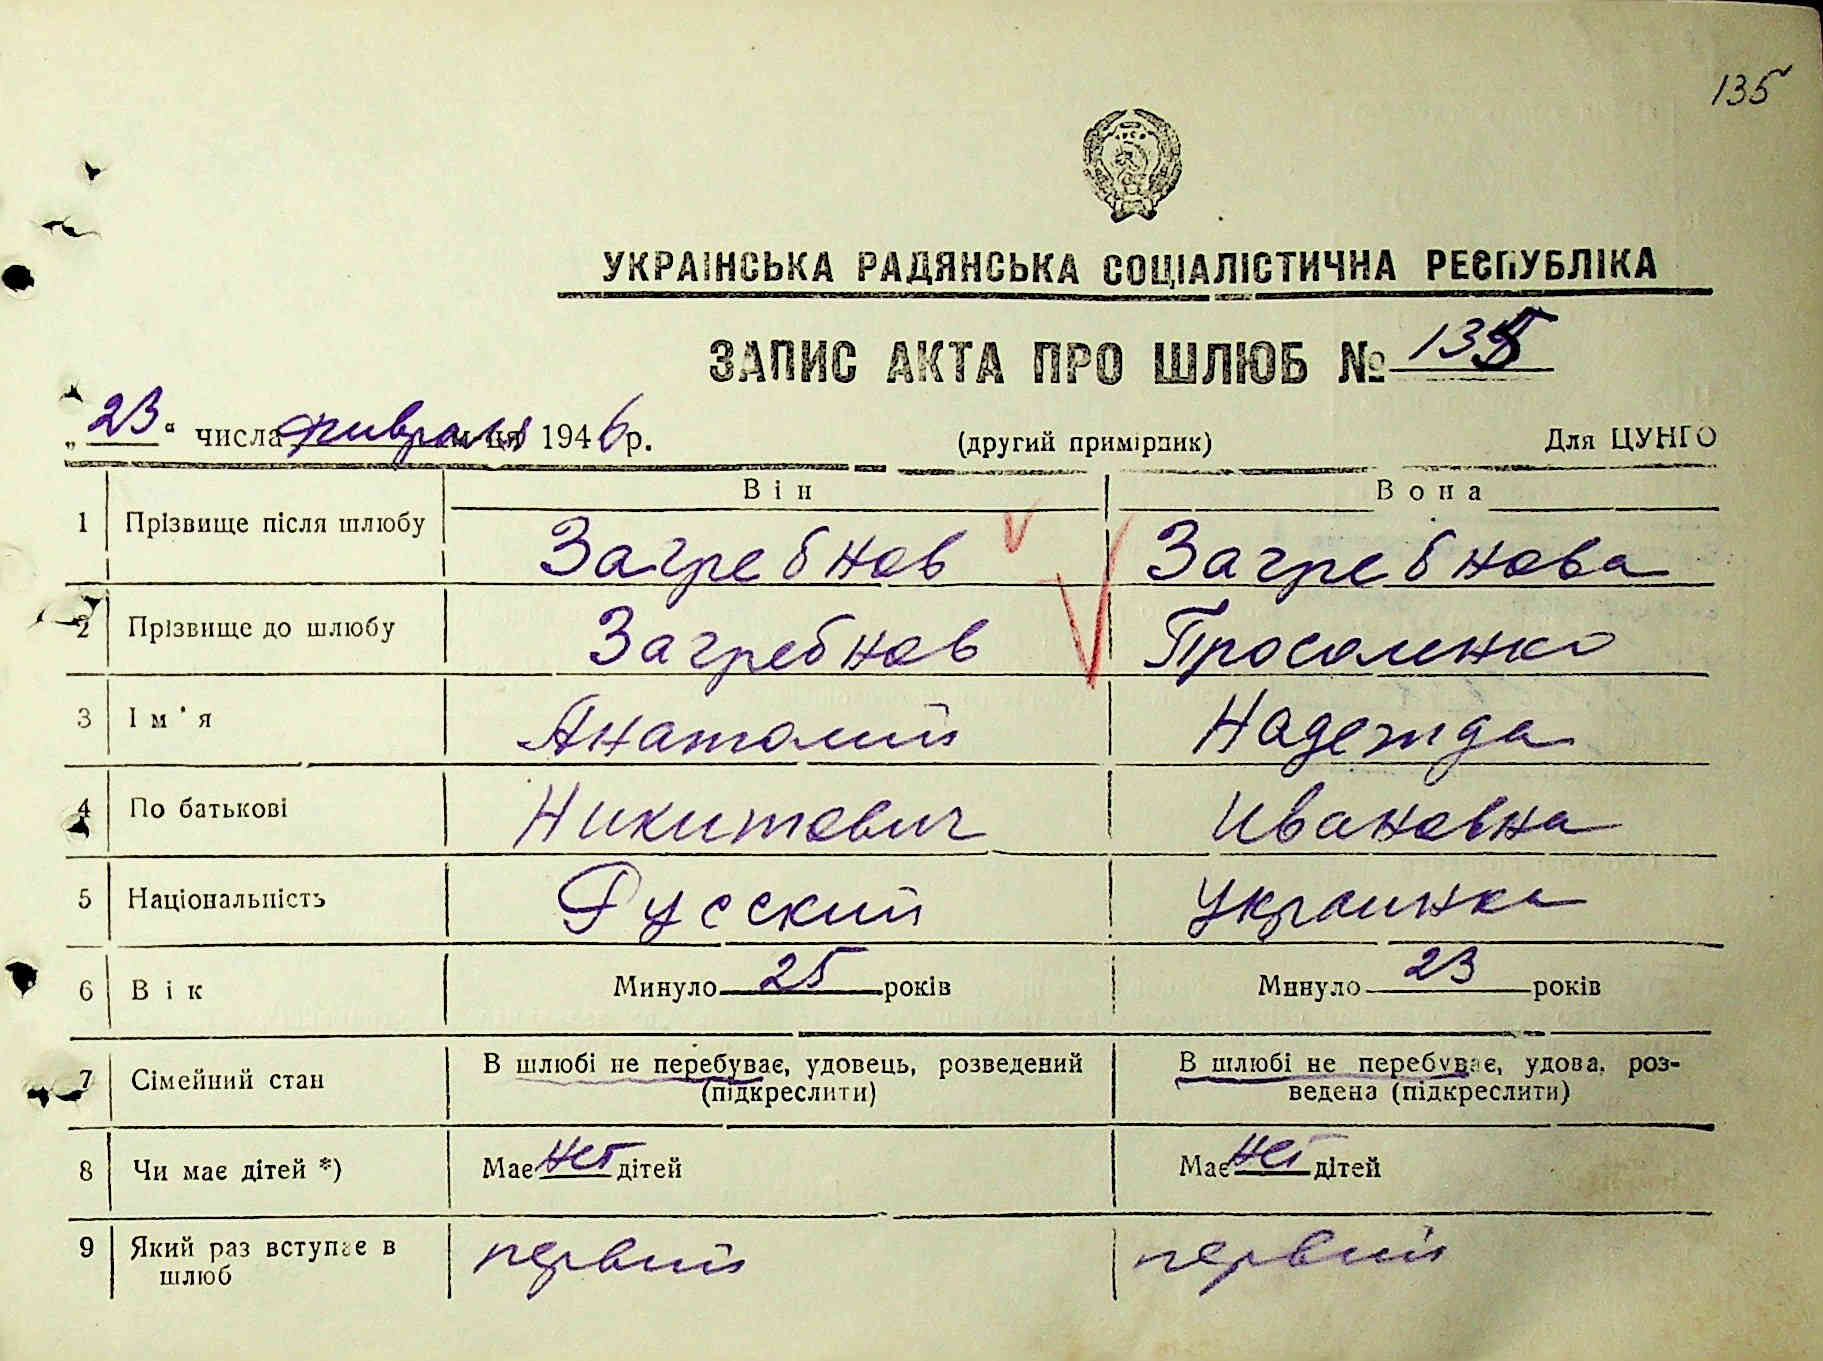 135
УКРАЇНСЬКА РАДЯНСЬКА СОЦІАЛІСТИЧНА РЕСПУБЛІКА
ЗАПИС АКТА ПРО ШЛЮБ № 135
„23“ числа февраля м-ця 1946 р. (другий примірник) Для ЦУНГО
Він Вона
1 Прізвище після шлюбу Загребнов Загребнова
2 Прізвище до шлюбу Загребнов Просоленко
3 Ім'я Анатолий Надежда
4 По батькові Никитович Ивановна
5 Національність Русский Украинка
6 Вік Минуло 25 років Минуло 23 років
7 Сімейний стан В шлюбі не перебуває, удовець, розведений В шлюбі не перебуває, удова, роз-
(підкреслити) ведена (підкреслити)
8 Чи має дітей *) Має нет дітей Має нет дітей
9 Який раз вступає в первий первий
шлюб